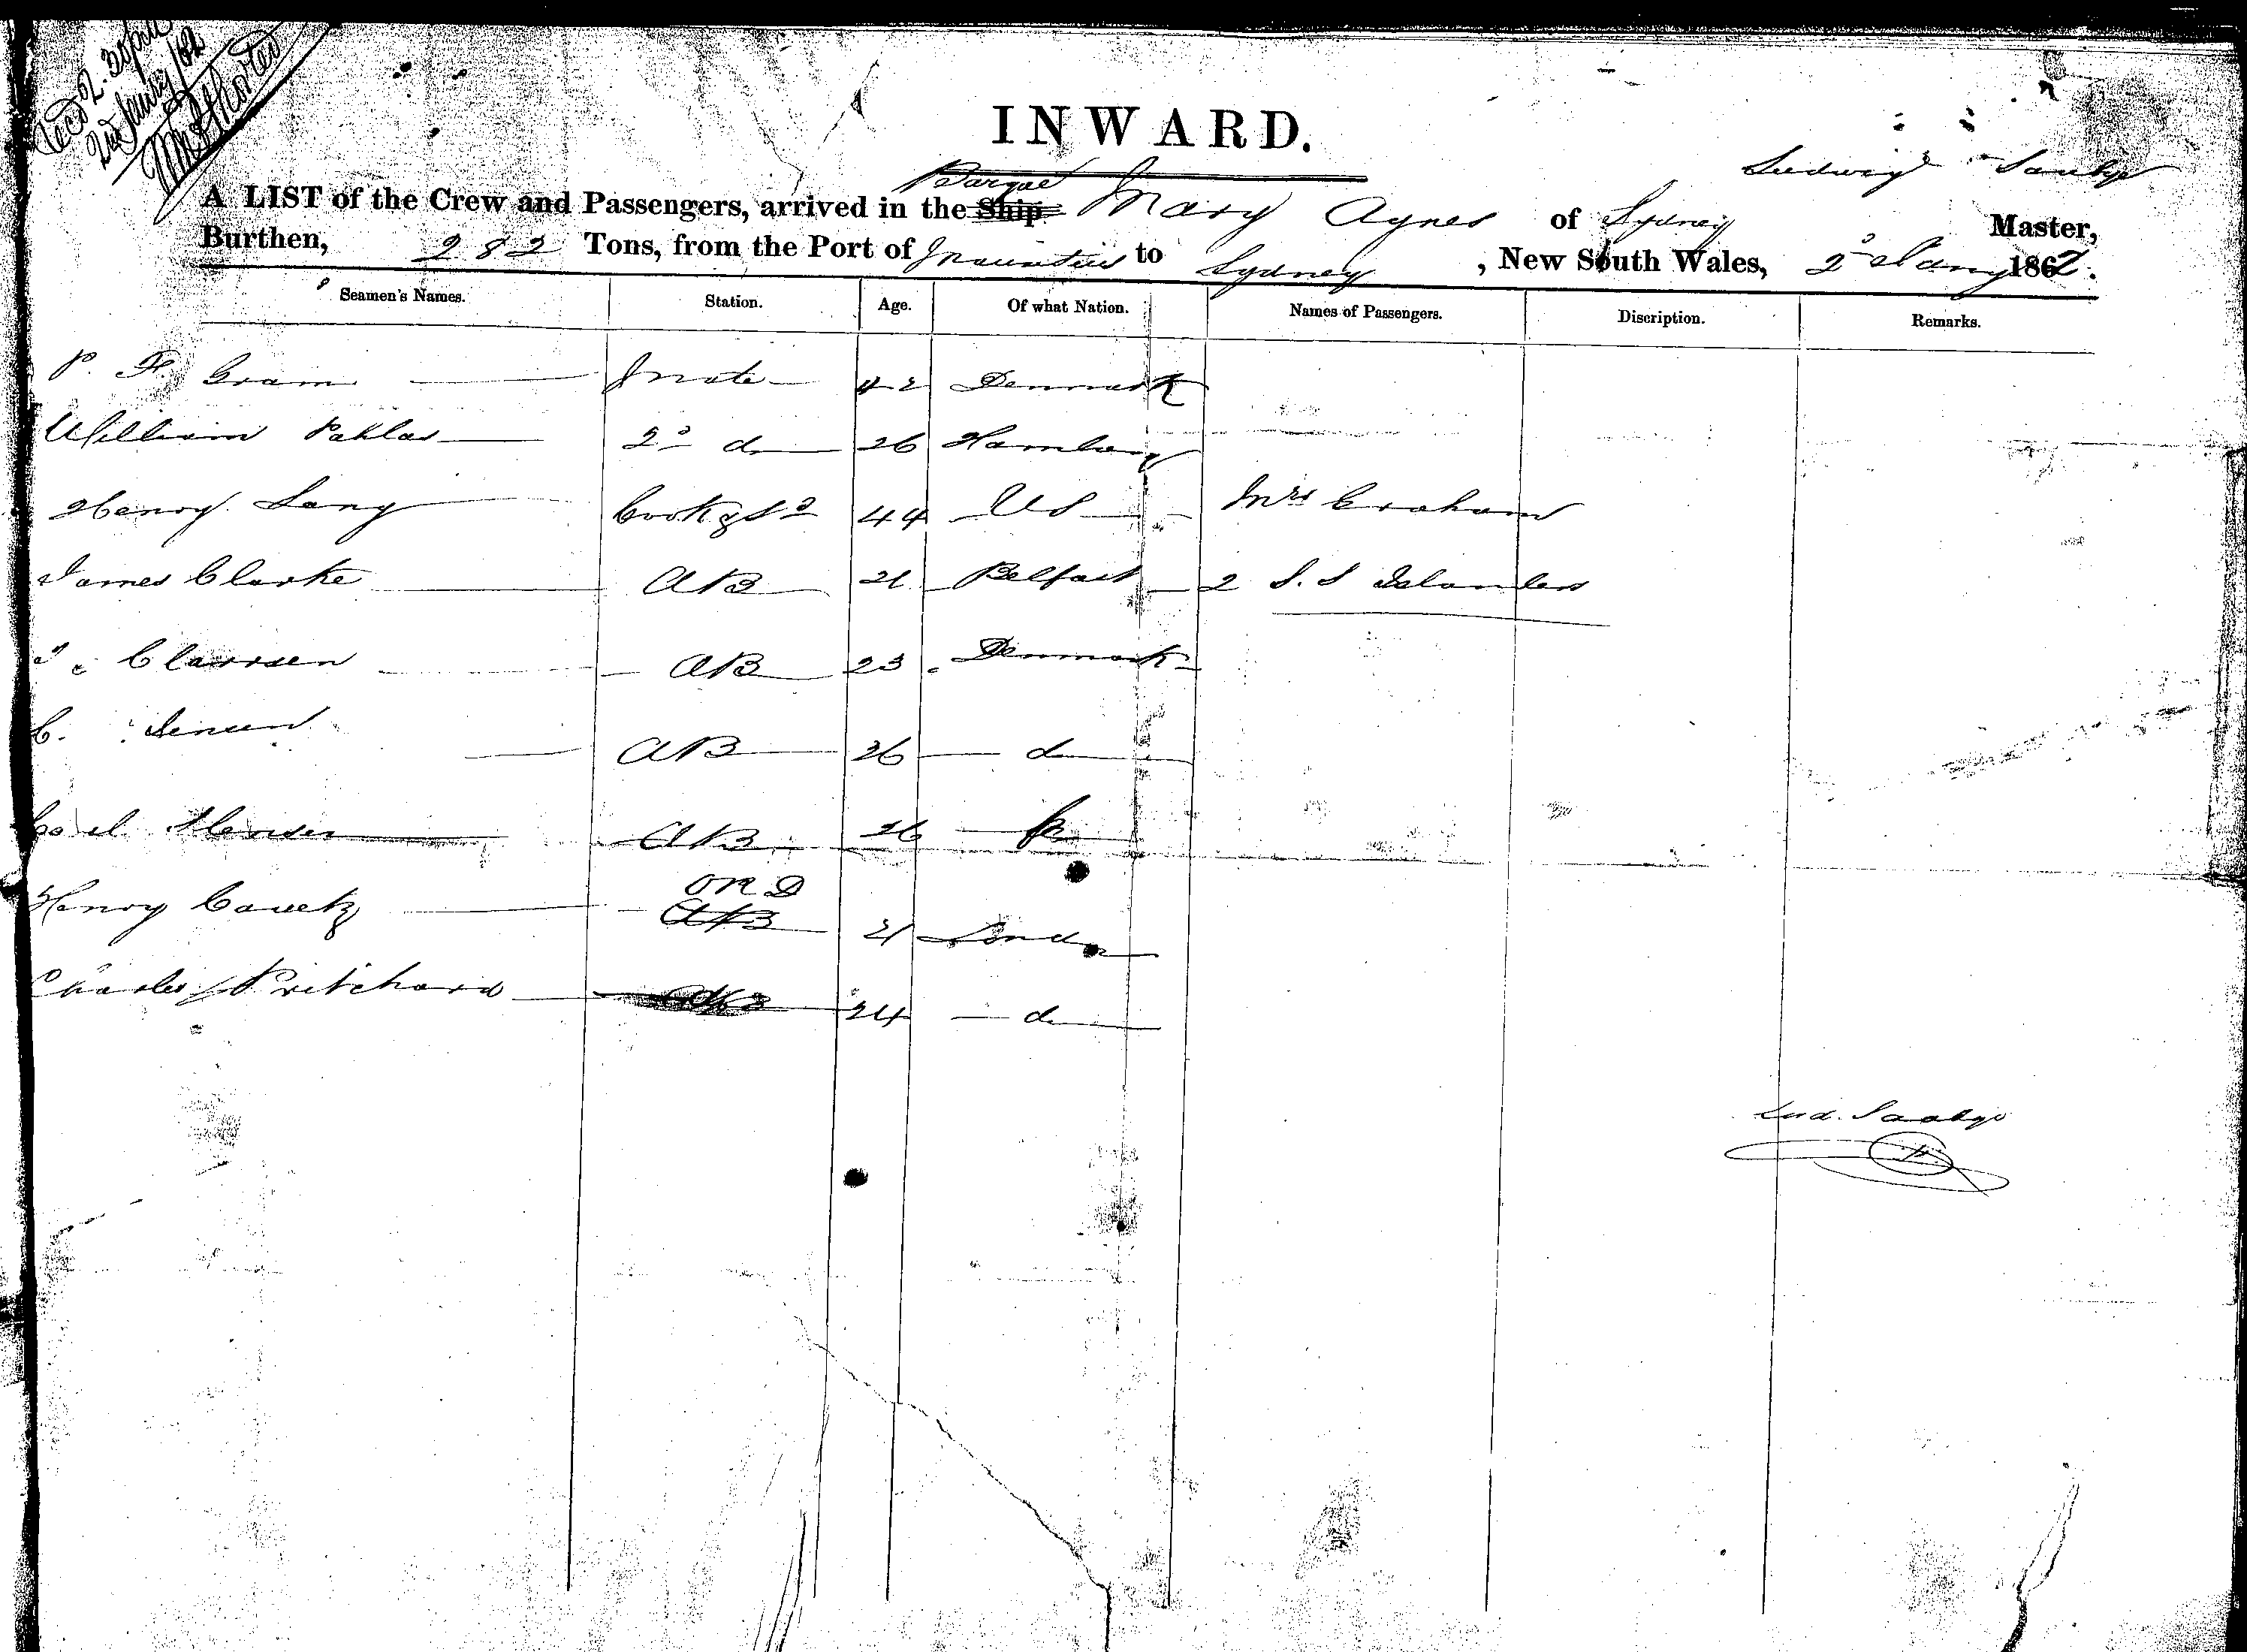 Recd 2.30 pm
2nd Jany /62
INWARD.
Ludwig Saabye
Barque
A LIST of the Crew and Passengers, arrived in the Ship Mary Agnes of Sydney Master,
Burthen, 282 Tons, from the Port of Mauritius to Sydney, New South Wales, 2d Jany 1862.
Seamen's Names. Station. Age. Of what Nation. Names of Passengers. Discription. Remarks.
P. F. Gram Mate 42 Denmark
William Pahlas 2d do 26 Hamburg
Henry Lang Cook & Sd 44 US Mrs Graham
James Clarke AB 21 Belfast 2 S. S Islanders
Clausen AB 23 Denmark
C. Jensen AB 26 do
Carl Hansen AB 26 do
ORD
Henry AB 21 London
Charles Pritchard AB 24 do
Lud. Saabye